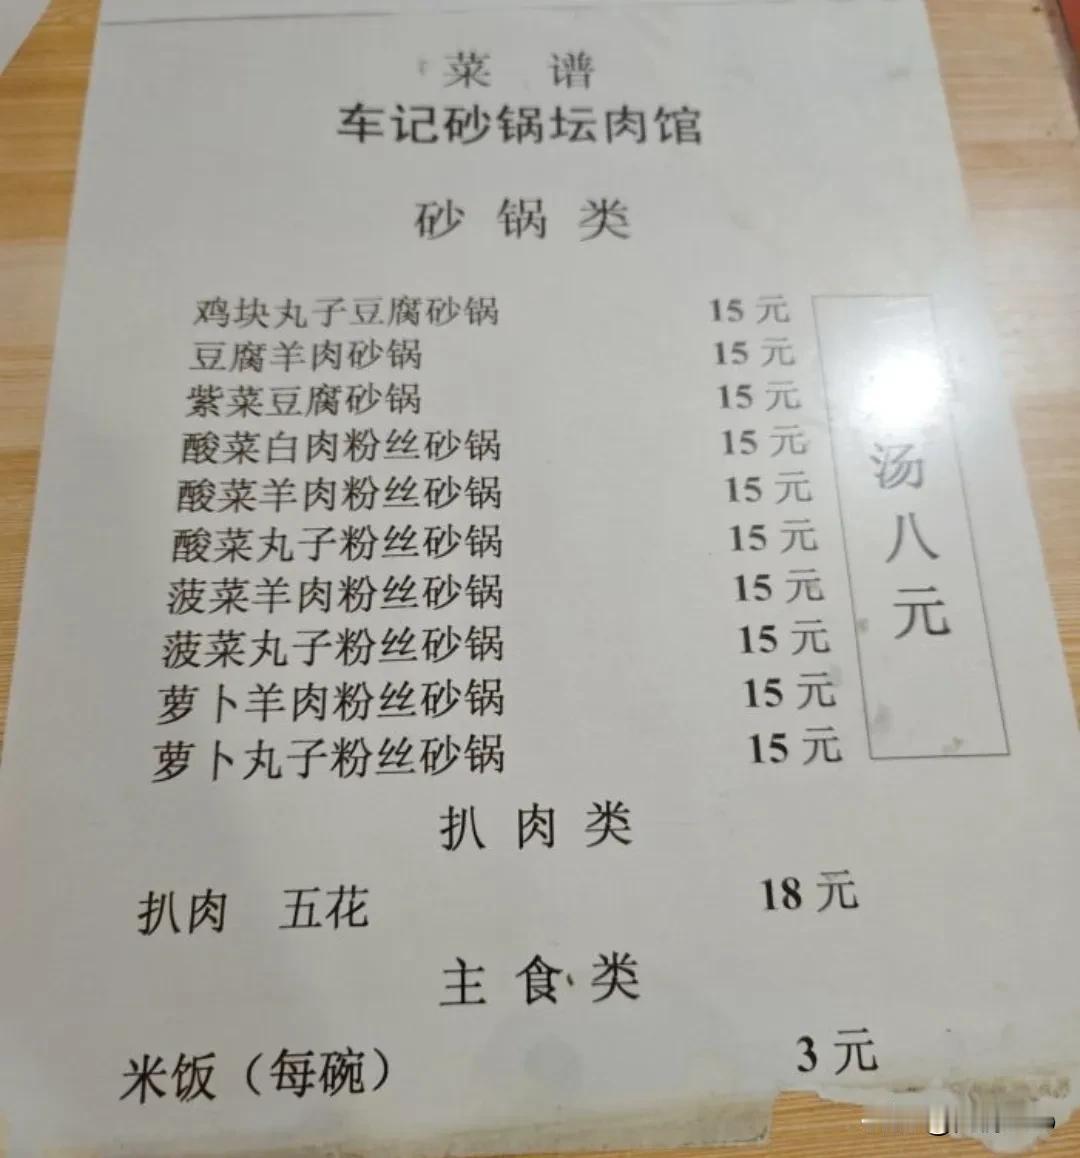 菜 谱
车记砂锅坛肉馆
砂 锅 类
鸡块丸子豆腐砂锅 15 元
豆腐羊肉砂锅 15 元
紫菜豆腐砂锅 15 元
酸菜白肉粉丝砂锅 15 元
酸菜羊肉粉丝砂锅 15 元
酸菜丸子粉丝砂锅 15 元
菠菜羊肉粉丝砂锅 15 元
菠菜丸子粉丝砂锅 15 元
萝卜羊肉粉丝砂锅 15 元
萝卜丸子粉丝砂锅 15 元
汤八元
扒 肉 类
扒肉 五花 18 元
主 食 类
米饭（每碗） 3 元